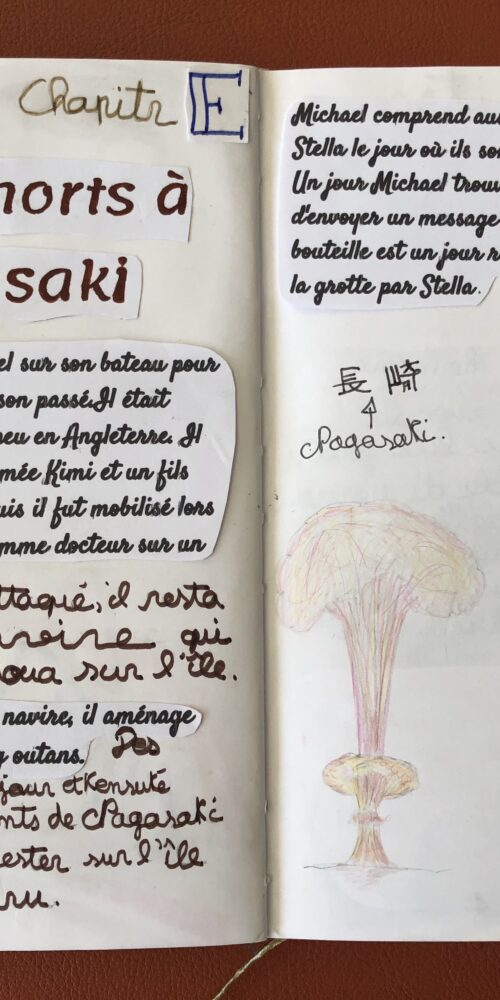 Chapitr E
morts à
saki
el sur son bateau pour
son passé.Il était
peu en Angleterre. Il
mée Kimi et un fils
uis il fut mobilisé lors
mme docteur sur un
ttaqué, il resta
qui
oua sur l'île.
navire, il aménage
g outans. Des
jour et Kensuké
nts de Nagasaki
ester sur l'île
ru.
Michael comprend au
Stella le jour où ils so
Un jour Michael trou
d'envoyer un message
bouteille est un jour r
la grotte par Stella.
長崎
Nagasaki.